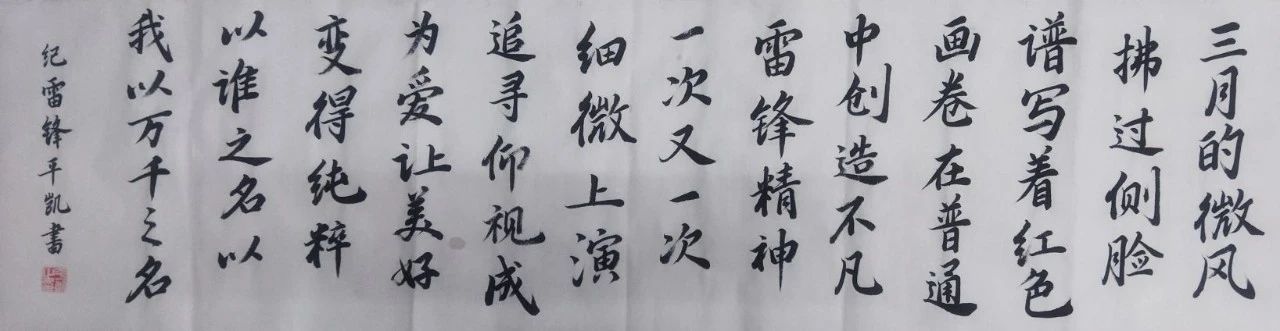 三月的微风
拂过侧脸
谱写着红色
画卷在普通
中创造不凡
雷锋精神
一次又一次
细微上演
追寻仰视成
为爱让美好
变得纯粹
以谁之名以
我以万千之名
纪雷锋平凯书